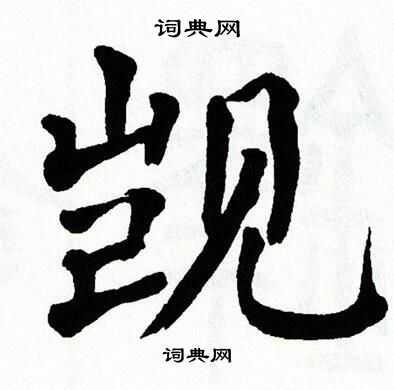 词典网
觊
词典网